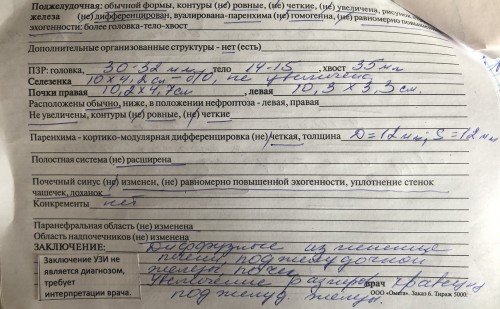 Поджелудочная: обычной формы, контуры (не) ровные, (не) четкие, (не) увеличена, рисунок
железа (не) дифференцирован, вуалирована-паренхима (не) гомогенна, (не) равномерно повышенной
эхогенности: более головка-тело-хвост
Дополнительные организованные структуры - нет (есть)
ПЗР: головка, 30-32 мм, тело 14-15, хвост 35 мм
Селезенка 10х4,2см - б/о, не увеличена
Почки правая 10,2х4,7см, левая 10,3х3,3 см.
Расположены обычно, ниже, в положении нефроптоза - левая, правая
Не увеличены, контуры (не) ровные, (не) четкие
Паренхима - кортико-модулярная дифференцировка (не) четкая, толщина D=12мм; S=12мм
Полостная система (не) расширена
Почечный синус (не) изменен, (не) равномерно повышенной эхогенности, уплотнение стенок
чашечек, лоханок
Конкременты нет
Паранефральная область (не) изменена
Область надпочечников (не) изменена
ЗАКЛЮЧЕНИЕ: Диффузные изменение
Заключение УЗИ не
является диагнозом,
требует
интерпретации врача.
печени поджелудочной
железы, почек
увеличение размеров врач
поджелуд. железы.
ООО «Омега». Заказ 6. Тираж 5000.